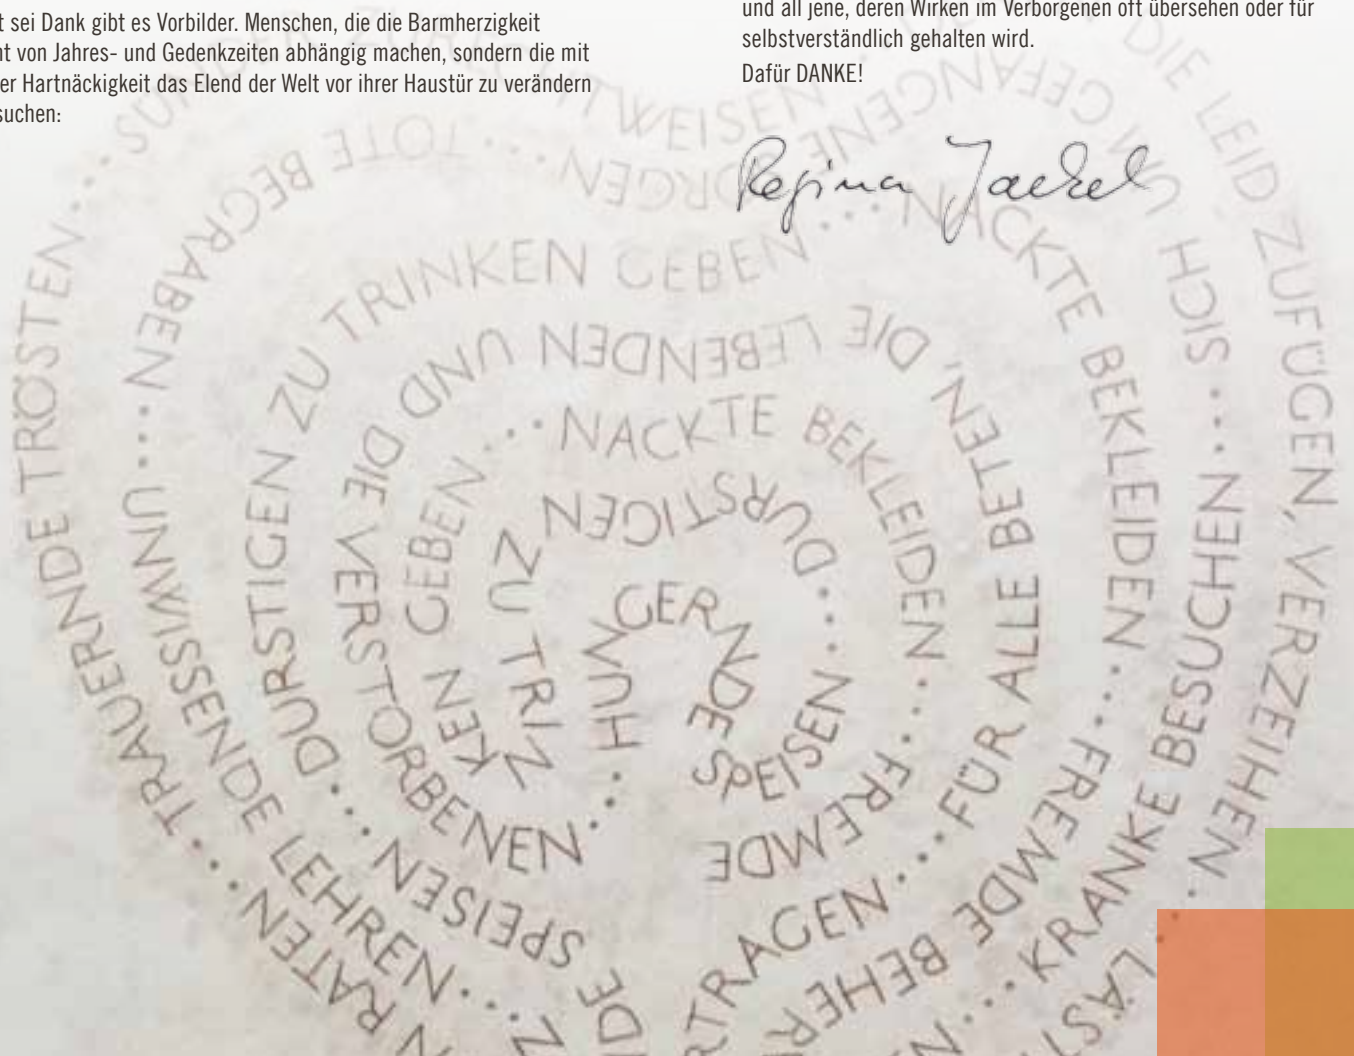 t sei Dank gibt es Vorbilder. Menschen, die die Barmherzigkeit
t von Jahres- und Gedenkzeiten abhängig machen, sondern die mit
er Hartnäckigkeit das Elend der Welt vor ihrer Haustür zu verändern
suchen:
und all jene, deren Wirken im Verborgenen oft übersehen oder für
selbstverständlich gehalten wird.
Dafür DANKE!
Regina Jaekel
HUNGERNDE SPEISEN ... DURSTIGEN ZU TRINKEN GEBEN ... NACKTE BEKLEIDEN ... FREMDE
TRAGEN ... FÜR ALLE BETEN, DIE LEBENDEN UND DIE VERSTORBENEN ...
SPEISEN ... DURSTIGEN ZU TRINKEN GEBEN ... NACKTE BEKLEIDEN ... FREMDE
KRANKE BESUCHEN ... SICH UM GEFANGENE SORGEN ... TOTE BEGRABEN ... UNWISSENDE LEHREN ...
RATEN ... TRAUERNDE TRÖSTEN ... SÜNDER ZURECHTWEISEN
DIE LEID ZUFÜGEN, VERZEIHEN ...